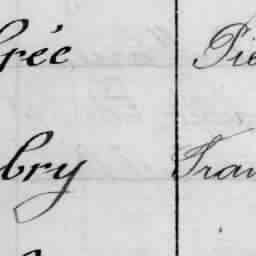 rée Pie
bry Fran